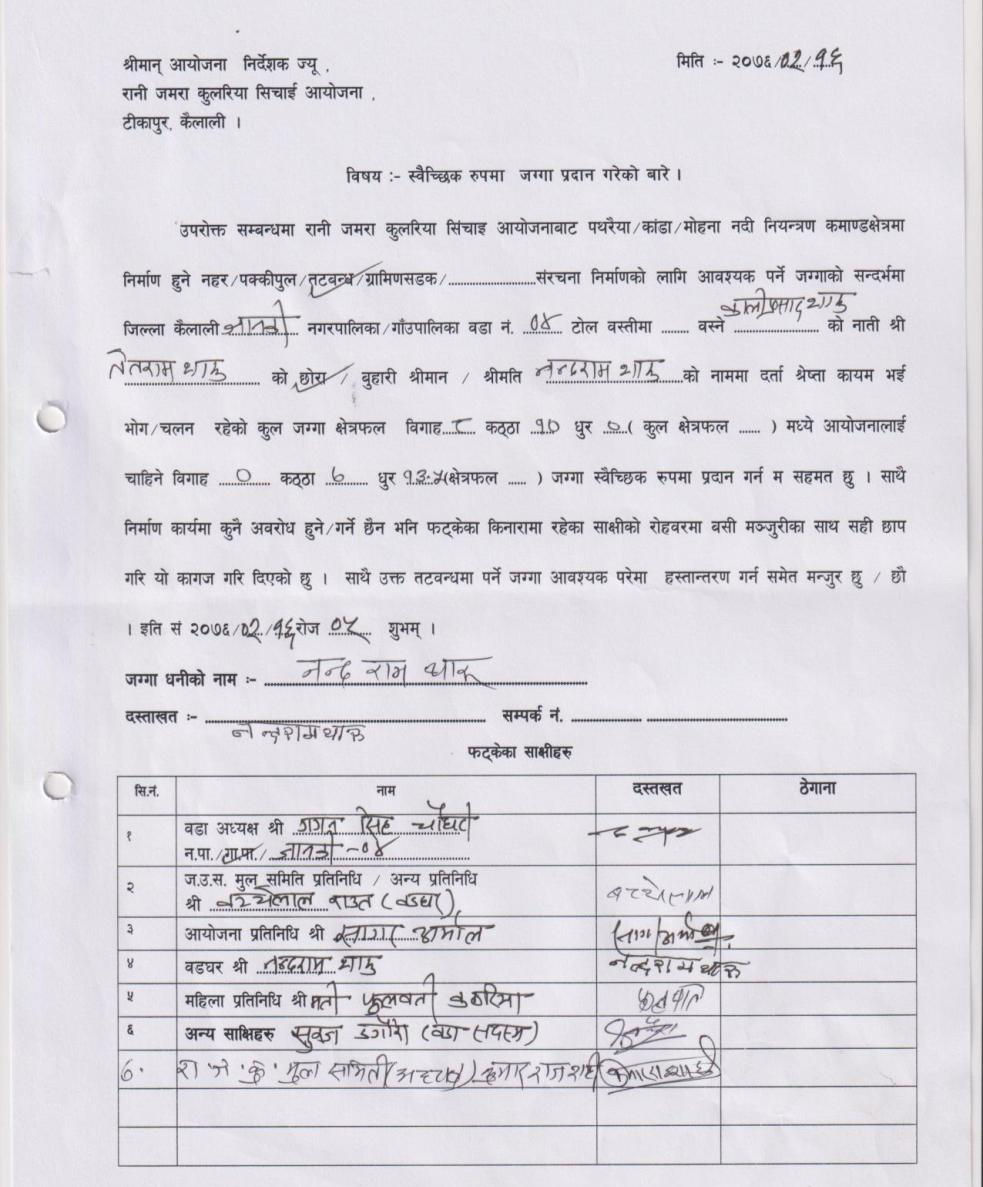 श्रीमान् आयोजना निर्देशक ज्यू ,
मिति :- २०७६/०२/१६
रानी जमरा कुलरिया सिचाई आयोजना ,
टीकापुर, कैलाली ।
विषय :- स्वैच्छिक रुपमा जग्गा प्रदान गरेको बारे ।
उपरोक्त सम्बन्धमा रानी जमरा कुलरिया सिंचाइ आयोजनाबाट पथरैया/कांडा/मोहना नदी नियन्त्रण कमाण्डक्षेत्रमा
निर्माण हुने नहर/पक्कीपुल/तटबन्ध/ग्रामिणसडक/....................संरचना निर्माणको लागि आवश्यक पर्ने जग्गाको सन्दर्भमा
जिल्ला कैलाली जानकी नगरपालिका/गाँउपालिका वडा नं. ०४ टोल वस्तीमा ........ वस्ने कालीप्रसाद थारु को नाती श्री
तेतराम थारु को छोरा / बुहारी श्रीमान / श्रीमति नन्दराम थारु को नाममा दर्ता श्रेष्ता कायम भई
भोग/चलन रहेको कुल जग्गा क्षेत्रफल विगाह ८ कठ्ठा १० धुर ० ( कुल क्षेत्रफल ...... ) मध्ये आयोजनालाई
चाहिने विगाह ० कठ्ठा ६ धुर १३.५ (क्षेत्रफल ..... ) जग्गा स्वैच्छिक रुपमा प्रदान गर्न म सहमत छु । साथै
निर्माण कार्यमा कुनै अवरोध हुने/गर्ने छैन भनि फट्केका किनारामा रहेका साक्षीको रोहवरमा वसी मञ्जुरीका साथ सही छाप
गरि यो कागज गरि दिएको छु । साथै उक्त तटवन्धमा पर्ने जग्गा आवश्यक परेमा हस्तान्तरण गर्न समेत मन्जुर छु / छौ
। इति सं २०७६/०२/१६ रोज ०५ शुभम् ।
जग्गा धनीको नाम :- नन्द राम थारू
दस्ताखत :- नन्दराम थारू सम्पर्क नं. ....................
फट्केका साक्षीहरु
सि.नं. नाम दस्तखत ठेगाना
१ वडा अध्यक्ष श्री गगन सिंह चौधरी
न.पा./गा.पा./ जानकी -०४
२ ज.उ.स. मुल समिति प्रतिनिधि / अन्य प्रतिनिधि
श्री बच्चेलाल राउत (वडघर) बच्चेलाल
३ आयोजना प्रतिनिधि श्री सागर
४ वडघर श्री नन्दराम थारु नन्दराम थारू
५ महिला प्रतिनिधि श्रीमती फूलवती कठरिया फूलवति
६ अन्य साक्षिहरु डगौरा (वडा सदस्य)
७. रा.ज.कु. मुल समिती (अध्यक्ष) कुमार राज शाही